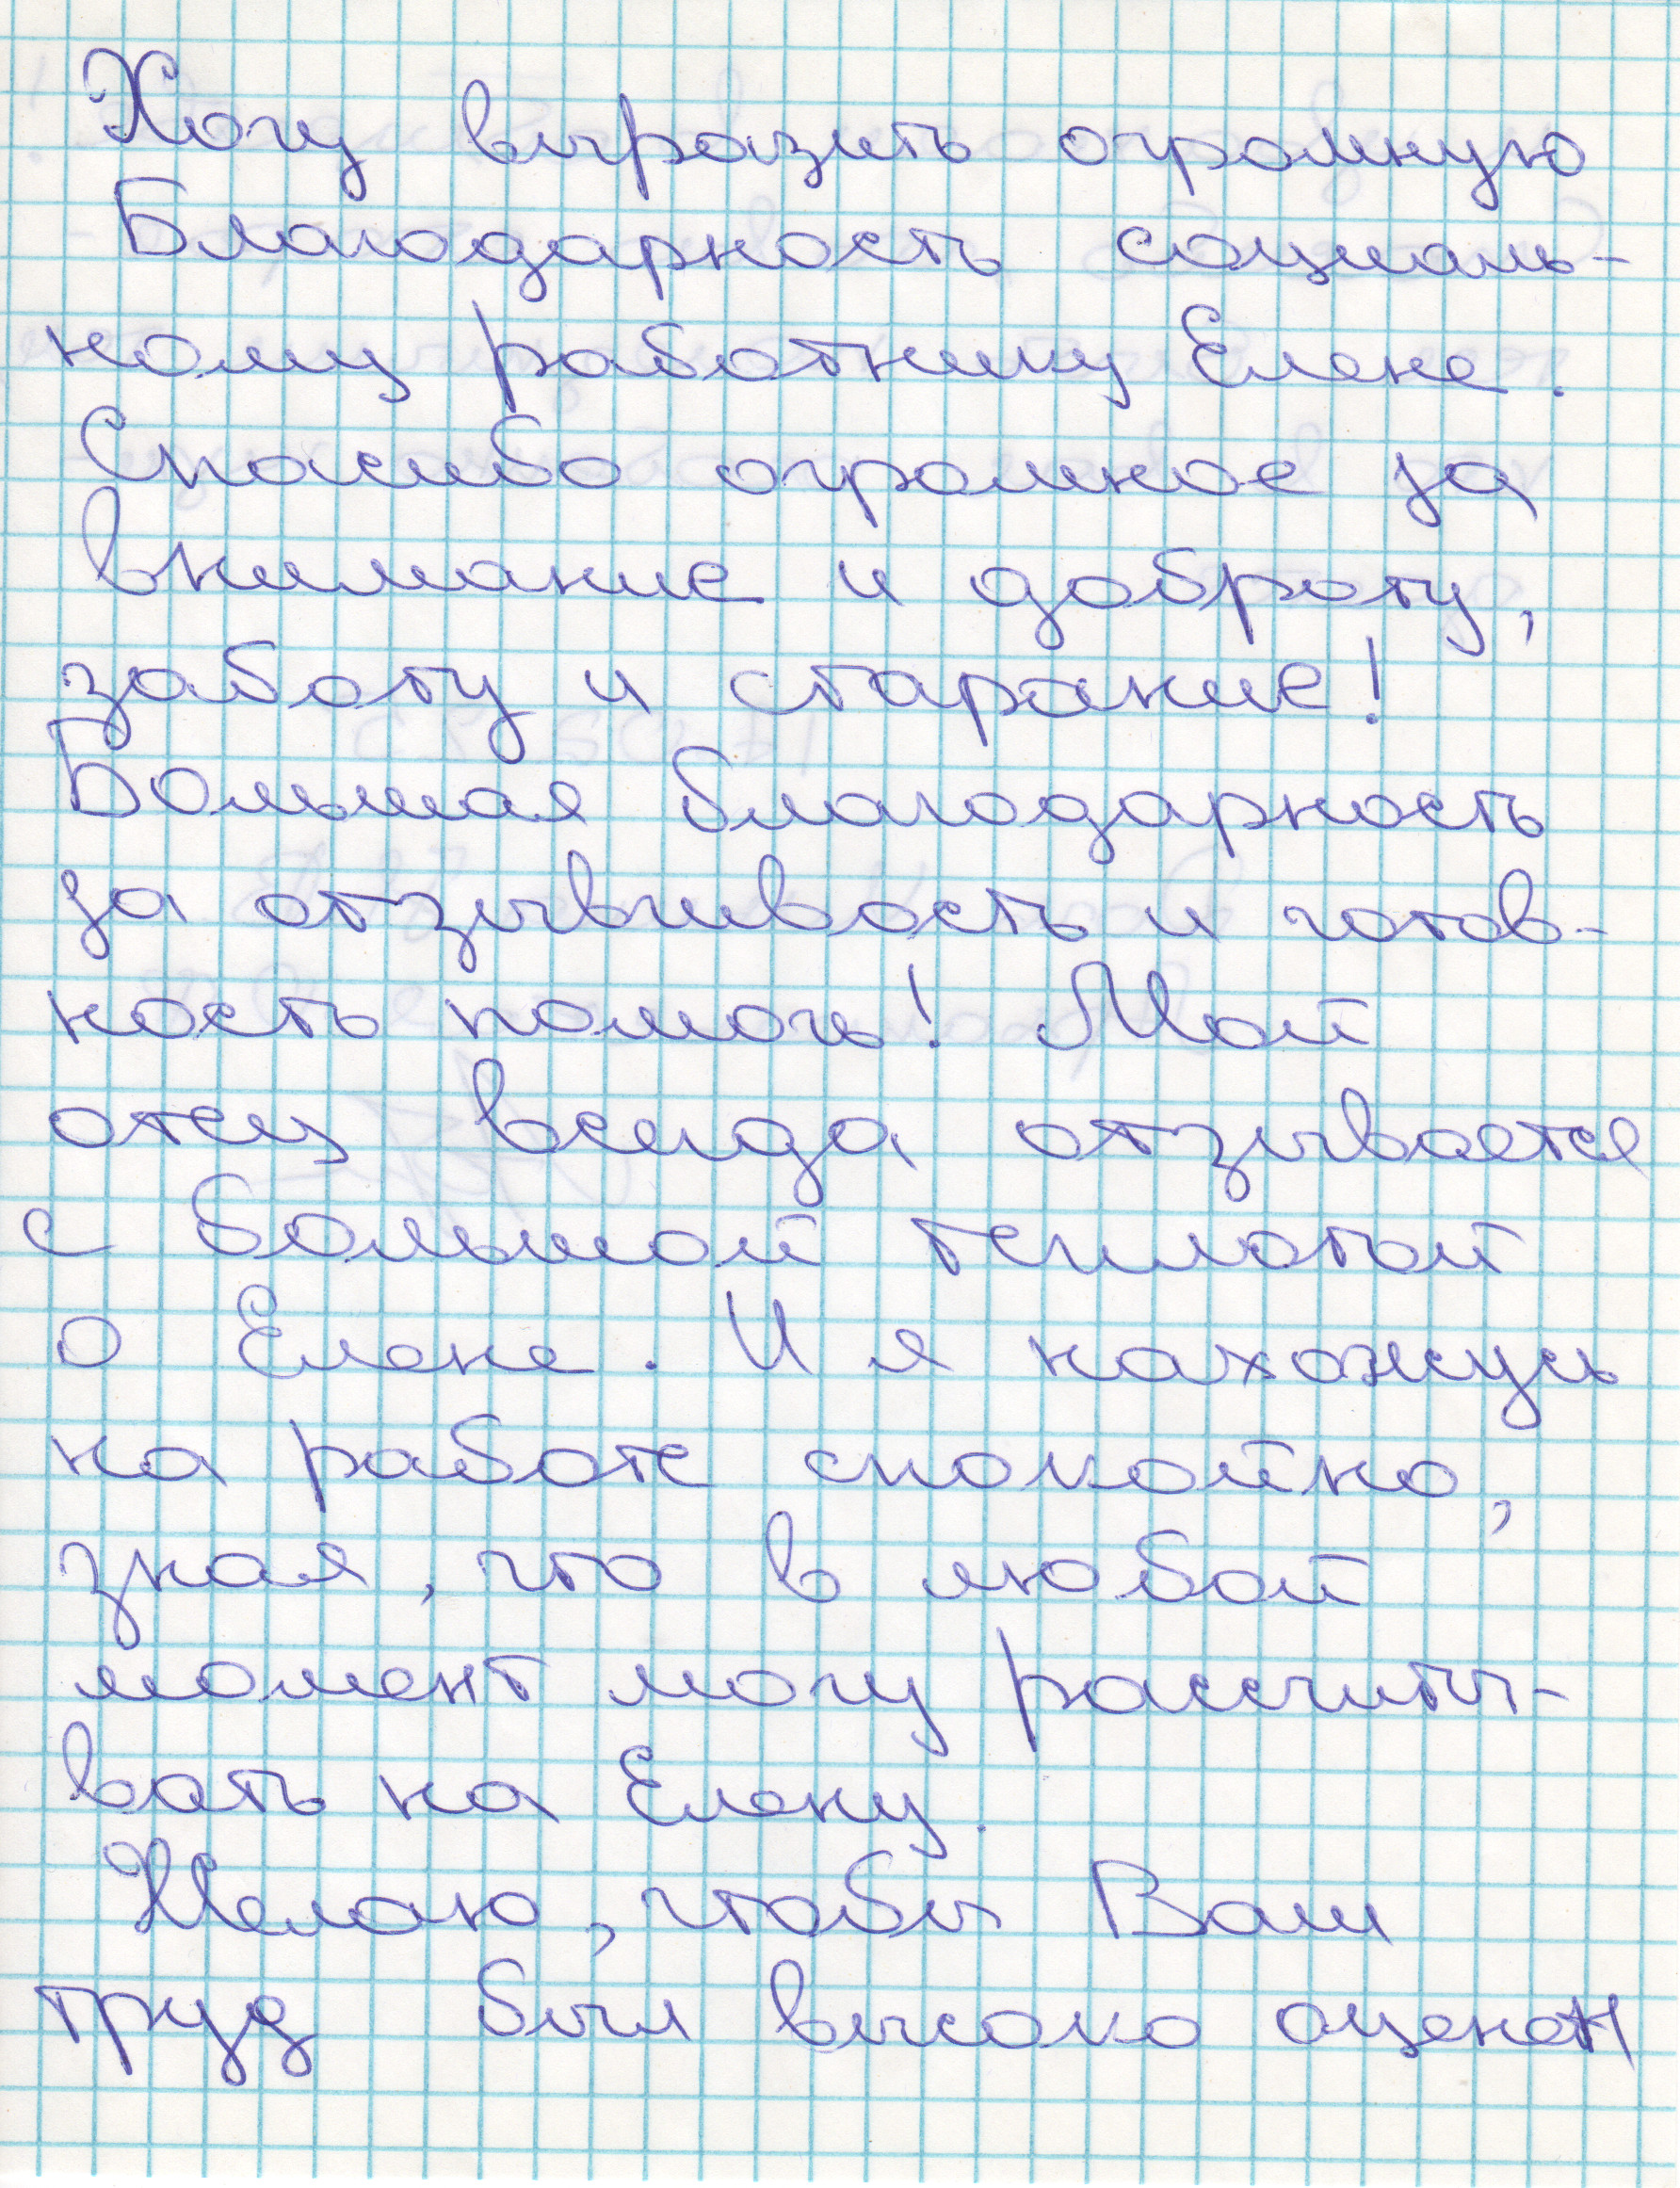 Хочу выразить огромную
Благодарность социаль-
ному работнику Елене.
Спасибо огромное за
внимание и доброту,
заботу и старание!
Большая благодарность
за отзывчивость и готов-
ность помочь! Мой
отец всегда отзывается
с большой теплотой
о Елене. И я нахожусь
на работе спокойно,
зная, что в любой
момент могу рассчиты-
вать на Елену.
Желаю, чтобы Ваш
труд был высоко оценен